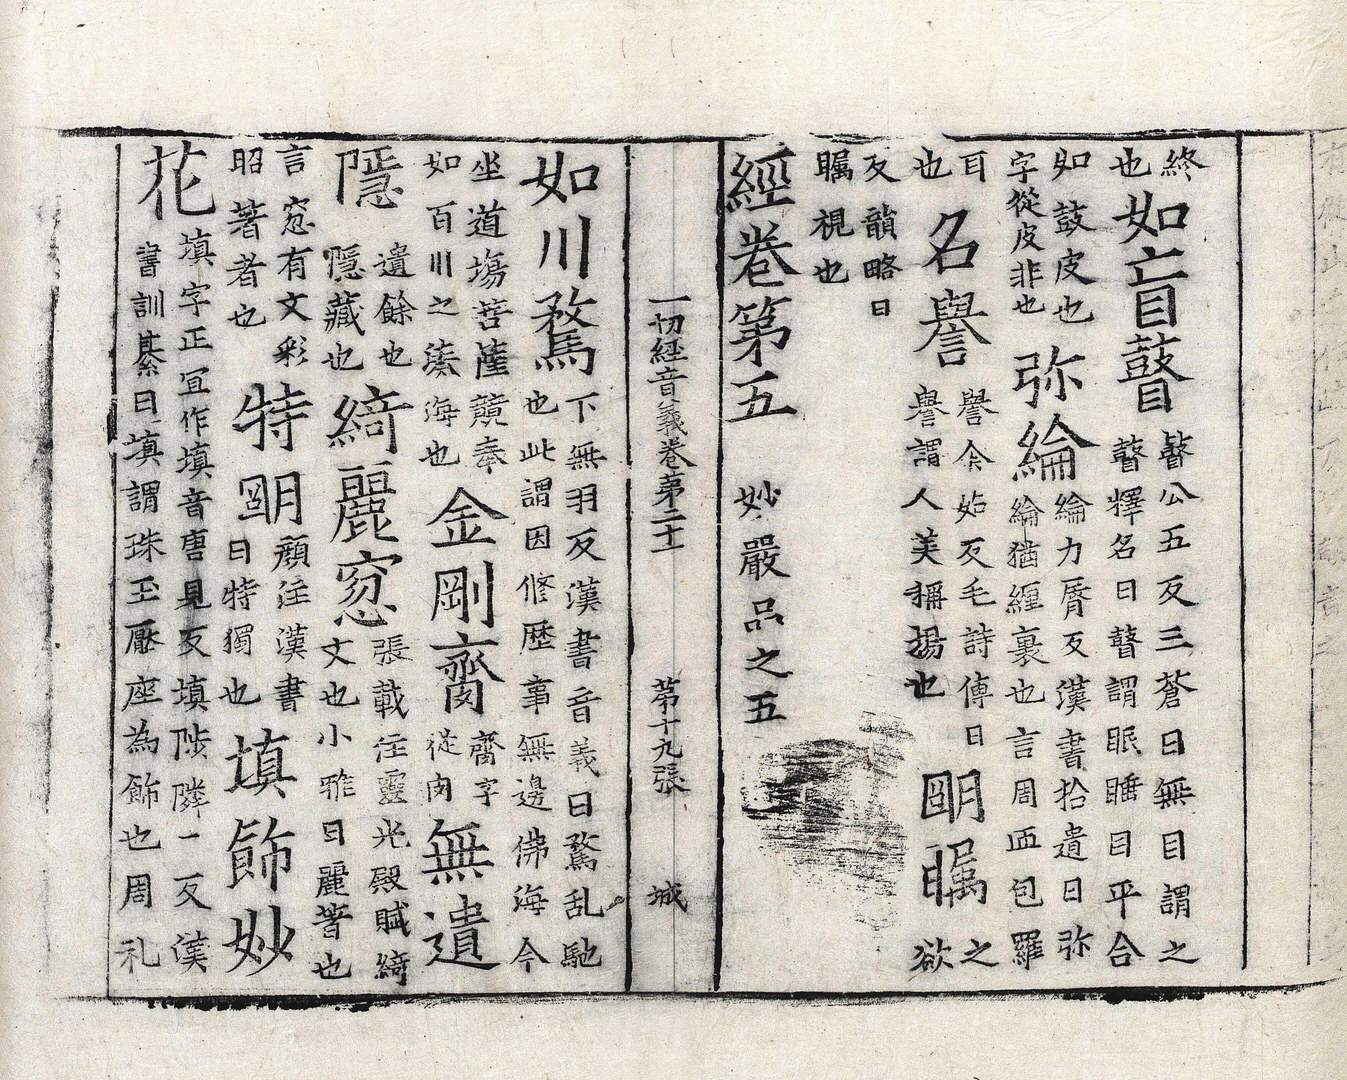 終也如盲瞽瞽公五反三蒼曰無目謂之瞽釋名曰瞽謂眠睡目平合
如鼓皮也字從皮非也弥綸綸力脣反漢書拾遺曰弥綸猶纏裹也言周匝包羅
耳也名譽譽余茹反毛詩傳曰譽謂人美稱揚也明矚之欲
反韻略曰矚視也
經卷第五 妙嚴品之五
一切經音義卷第二十一 第十九張 城
如川騖下無羽反漢書音義曰騖乱馳也此謂因修歷事無邊佛海今
坐道場菩薩競奉如百川之湊海也金剛齎齎字從肉無遺
隱遺餘也隱藏也綺麗窓張載注靈光殿賦綺文也小雅曰麗著也
言窓有文彩昭著者也特明顔注漢書曰特獨也填飾妙
花填字正冝作填音唐見反填陟隣一反漢書訓綦曰填謂珠玉壓座為飾也周礼